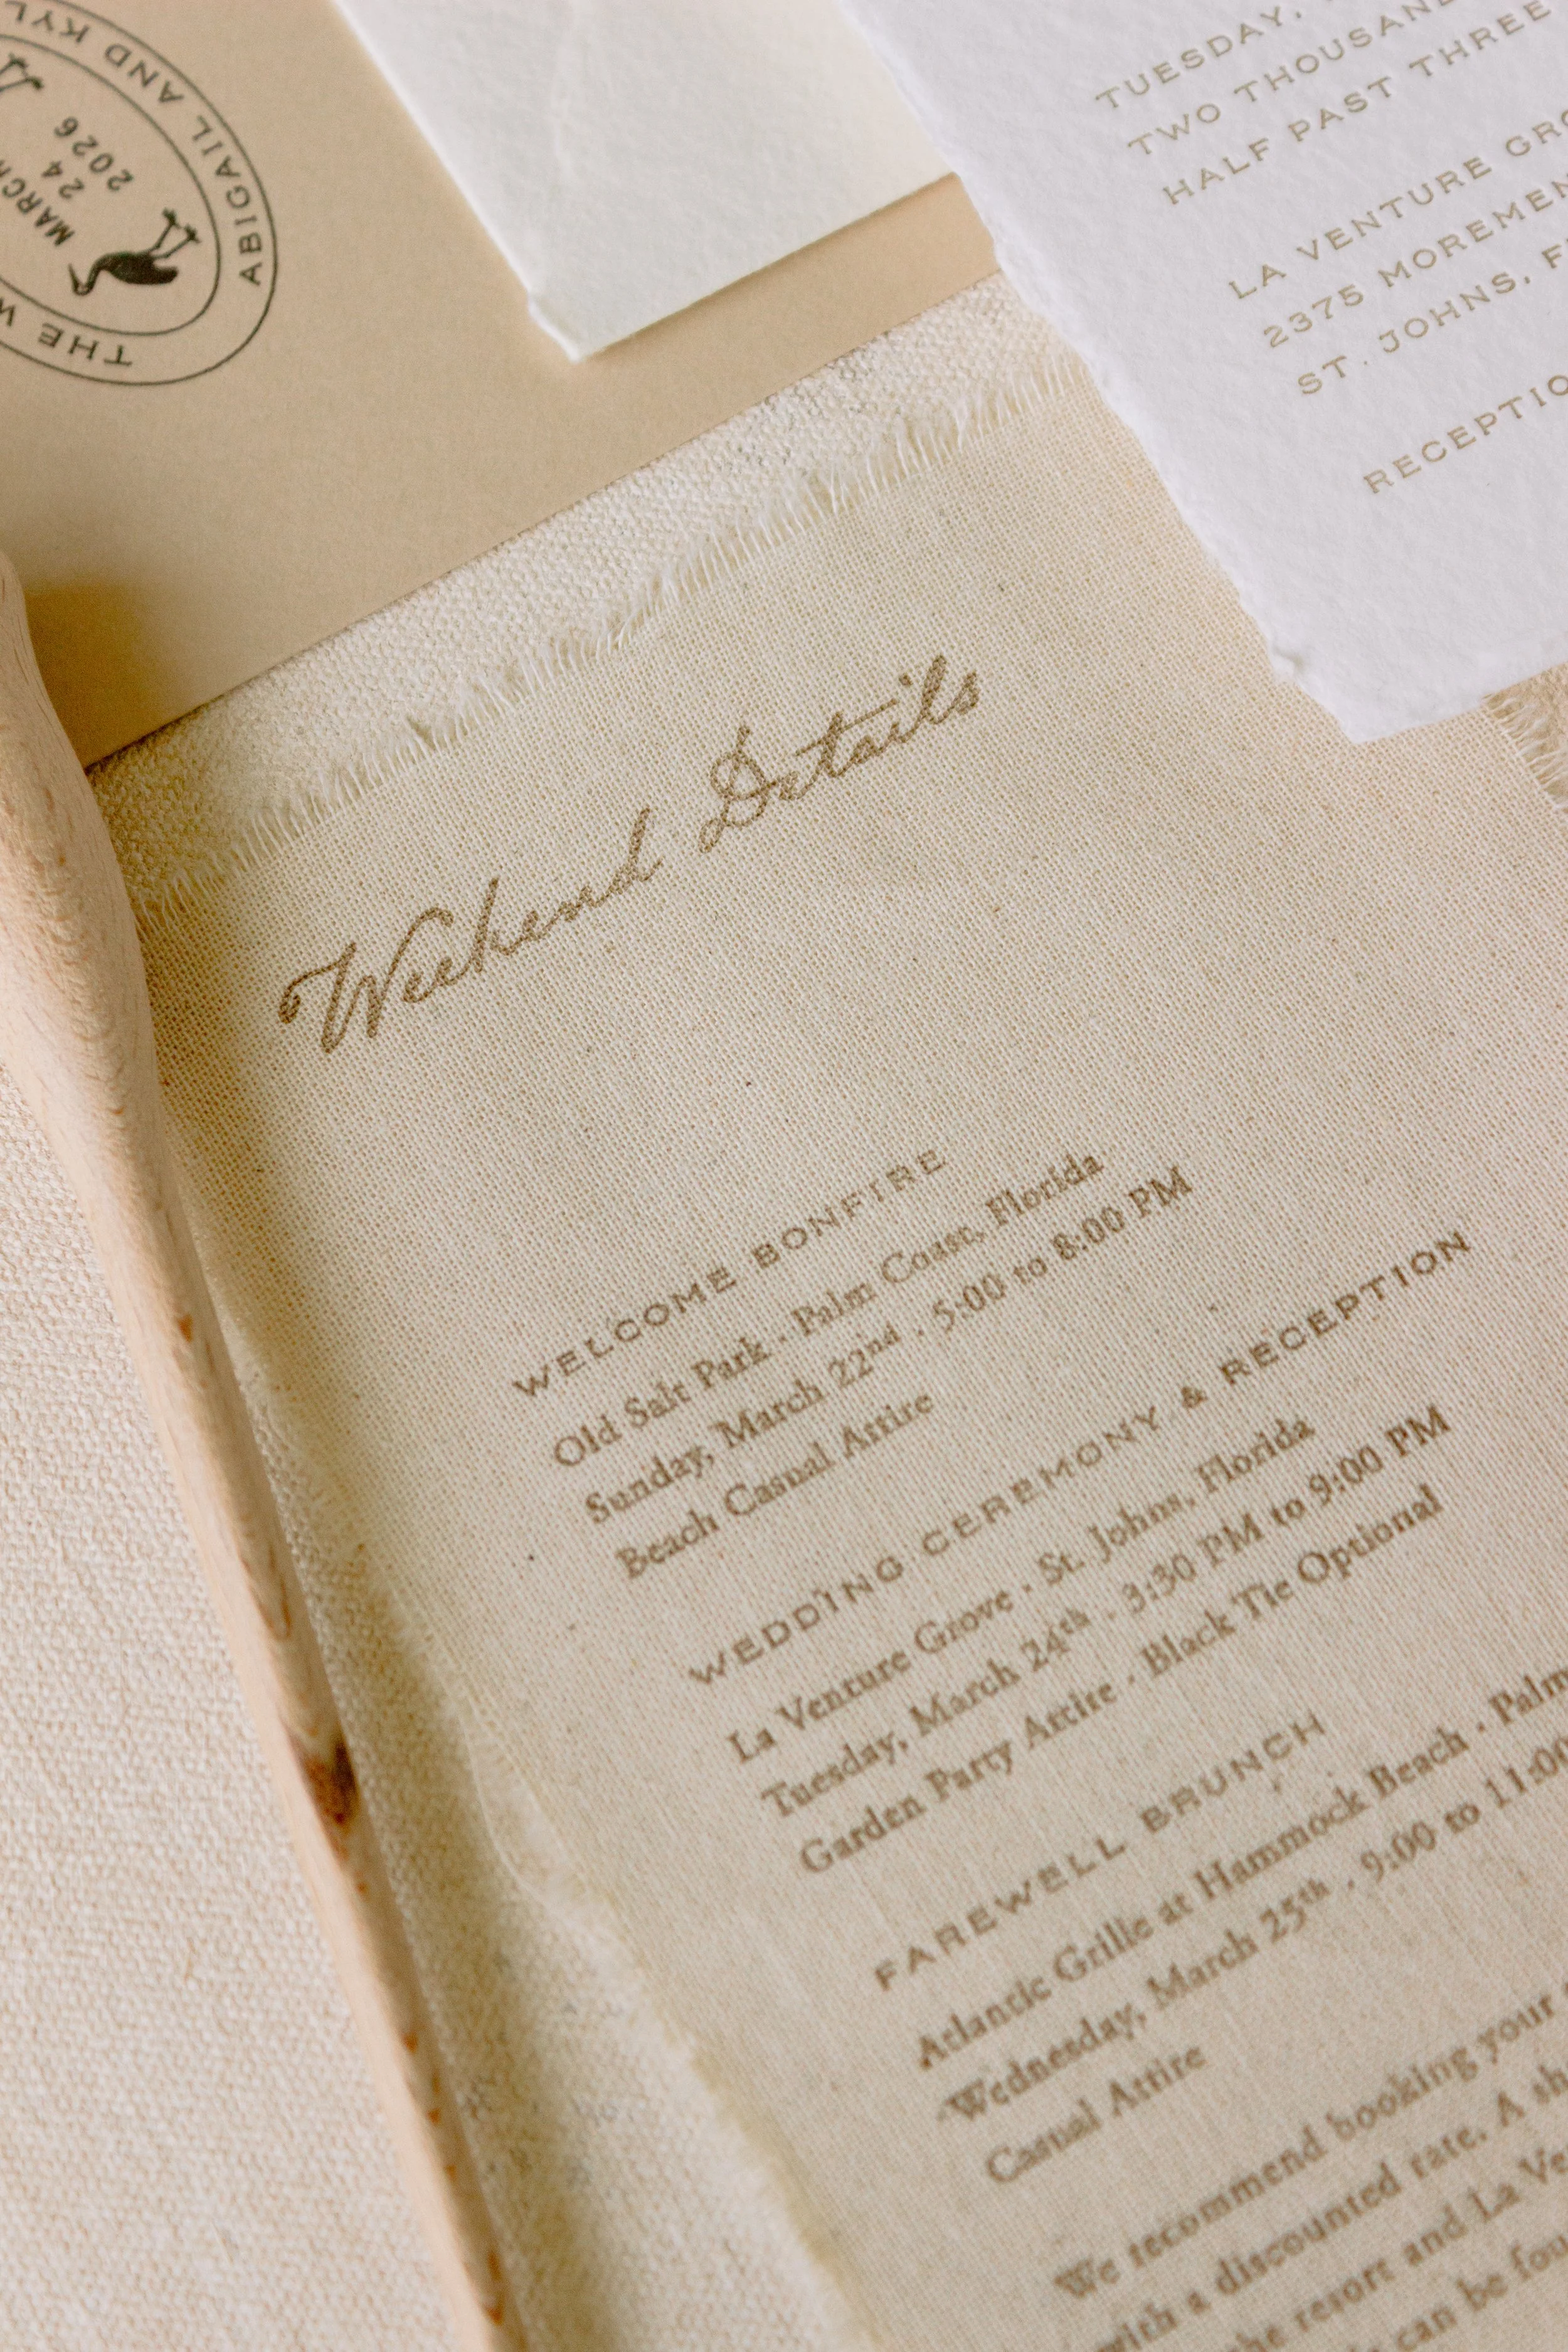 ABIGAIL AND
MARCH
24
2026
THE
TUESDAY,
TWO THOUSAND
HALF PAST THREE
LA VENTURE
2375
ST. JOHNS,
Weekend Details
WELCOME BONFIRE
Old Salt Park · Palm Coast, Florida
Sunday, March 22nd · 5:00 to 8:00 PM
Beach Casual Attire
WEDDING CEREMONY & RECEPTION
La Venture Grove · St. Johns, Florida
Tuesday, March 24th · 3:30 PM to 9:00 PM
Garden Party Attire · Black Tie Optional
FAREWELL BRUNCH
Atlantic Grille at Hammock Beach · Palm
Wednesday, March 25th · 9:00 to 11:00
Casual Attire
We recommend booking your
with a discounted rate. A
the resort and La
can be